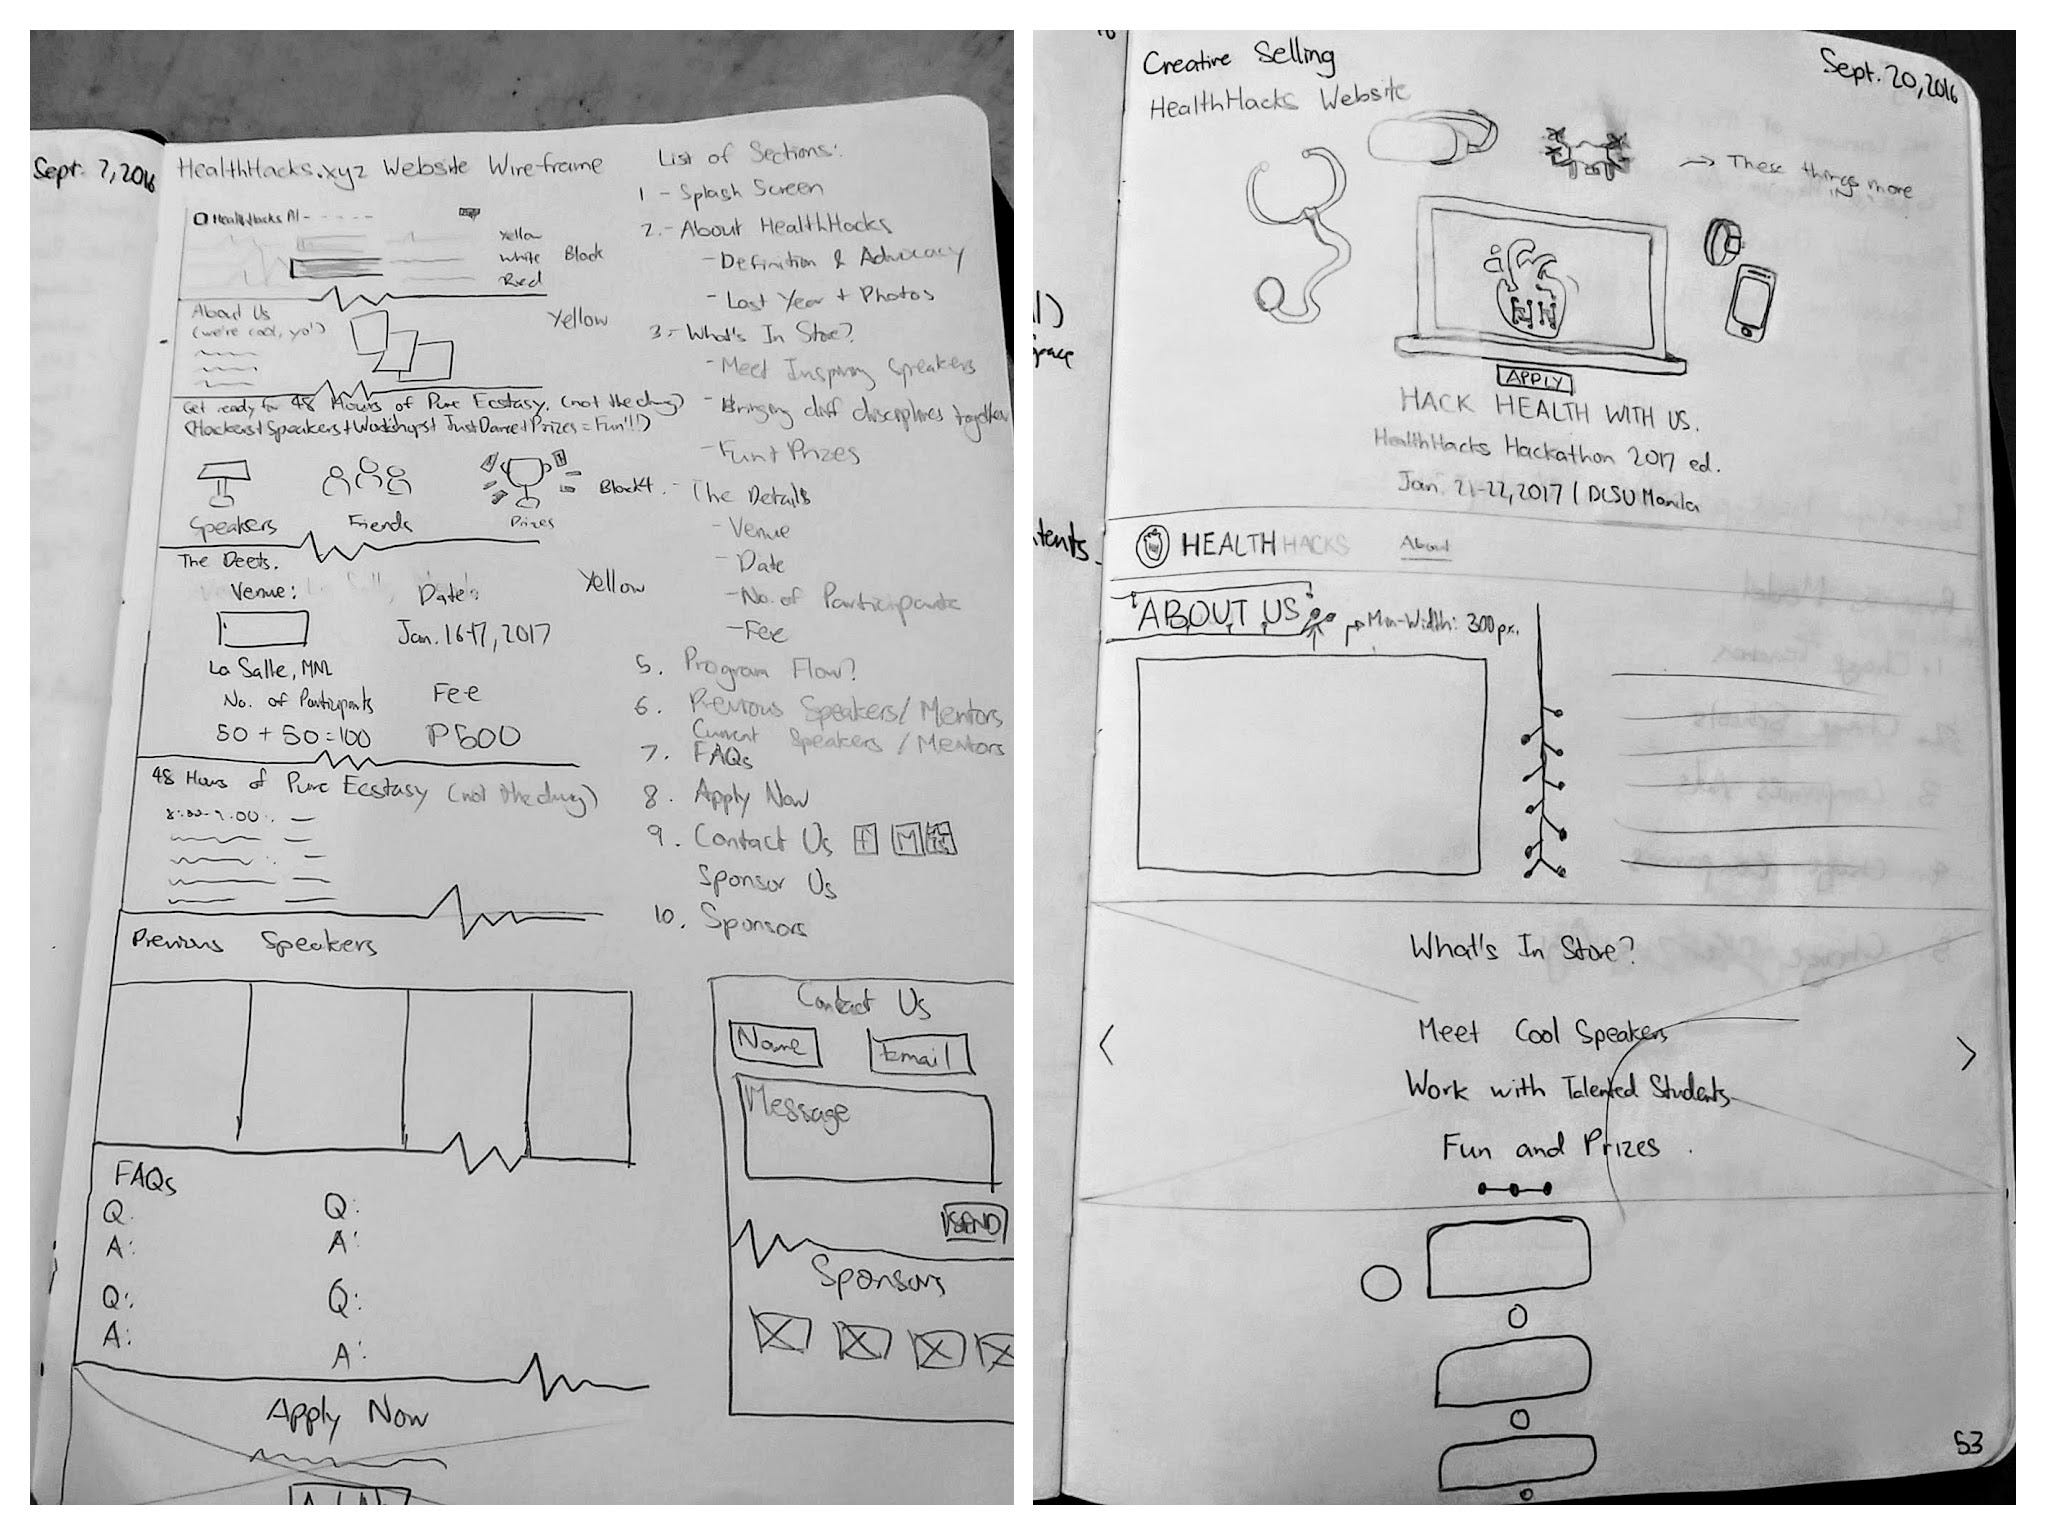 Sept. 7, 2016
HealthHacks.xyz Website Wireframe
HealthHacks
Yellow
White Black
Red
About Us
(we're cool, yo!)
Yellow
Get ready for 48 Hours of Pure Ecstasy. (not the drug)
(Hackers+Speakers+Workshops+ Just Dance+Prizes = Fun!!!)
Black
Speakers Friends Prizes
The Deets.
Venue: Date:
Yellow
Jan. 16-17, 2017
La Salle, MNL
No. of Participants Fee
50 + 50 = 100 P500
48 Hours of Pure Ecstasy (not the drug)
8:00-9:00
Previous Speakers
FAQs
Q: Q:
A: A:
Q: Q:
A: A:
Apply Now
List of Sections:
1 - Splash Screen
2. - About HealthHacks
- Definition & Advocacy
- Last Year + Photos
3. - What's In Store?
- Meet Inspiring Speakers
- Bringing diff disciplines together
- Fun + Prizes
4. - The Details
- Venue
- Date
- No. of Participants
- Fee
5. Program Flow?
6. Previous Speakers / Mentors
Current Speakers / Mentors
7. FAQs
8. Apply Now
9. Contact Us f M
Sponsor Us
10. Sponsors
Contact Us
Name Email
Message
SEND
Sponsors
Creative Selling
Sept. 20, 2016
HealthHacks Website
→ These things move
HH
APPLY
HACK HEALTH WITH US.
HealthHacks Hackathon 2017 ed.
Jan. 21-22, 2017 | DLSU Manila
HEALTHHACKS About
ABOUT US
Min-Width: 300px.
What's In Store?
Meet Cool Speakers
< >
Work with Talented Students
Fun and Prizes.
53